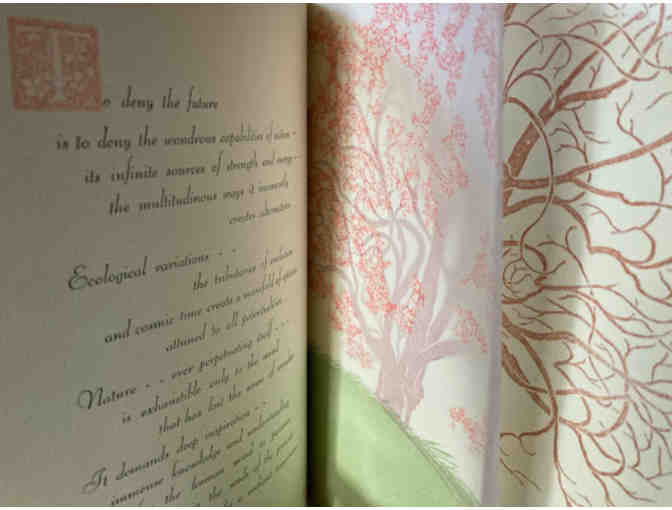 To deny the future
is to deny the wondrous capabilities of nature -
its infinite sources of strength and energy --
the multitudinous ways it immensely
creates
Ecological variations - -
the tributaries of evolution
and cosmic time create a manifold of
attuned to all potentialities
Nature - - ever perpetuating itself - -
is exhaustible only to the mind
that has lost the sense of wonder
It demands deep inspiration - -
immense knowledge and understanding
for the human mind to
the seeds of the